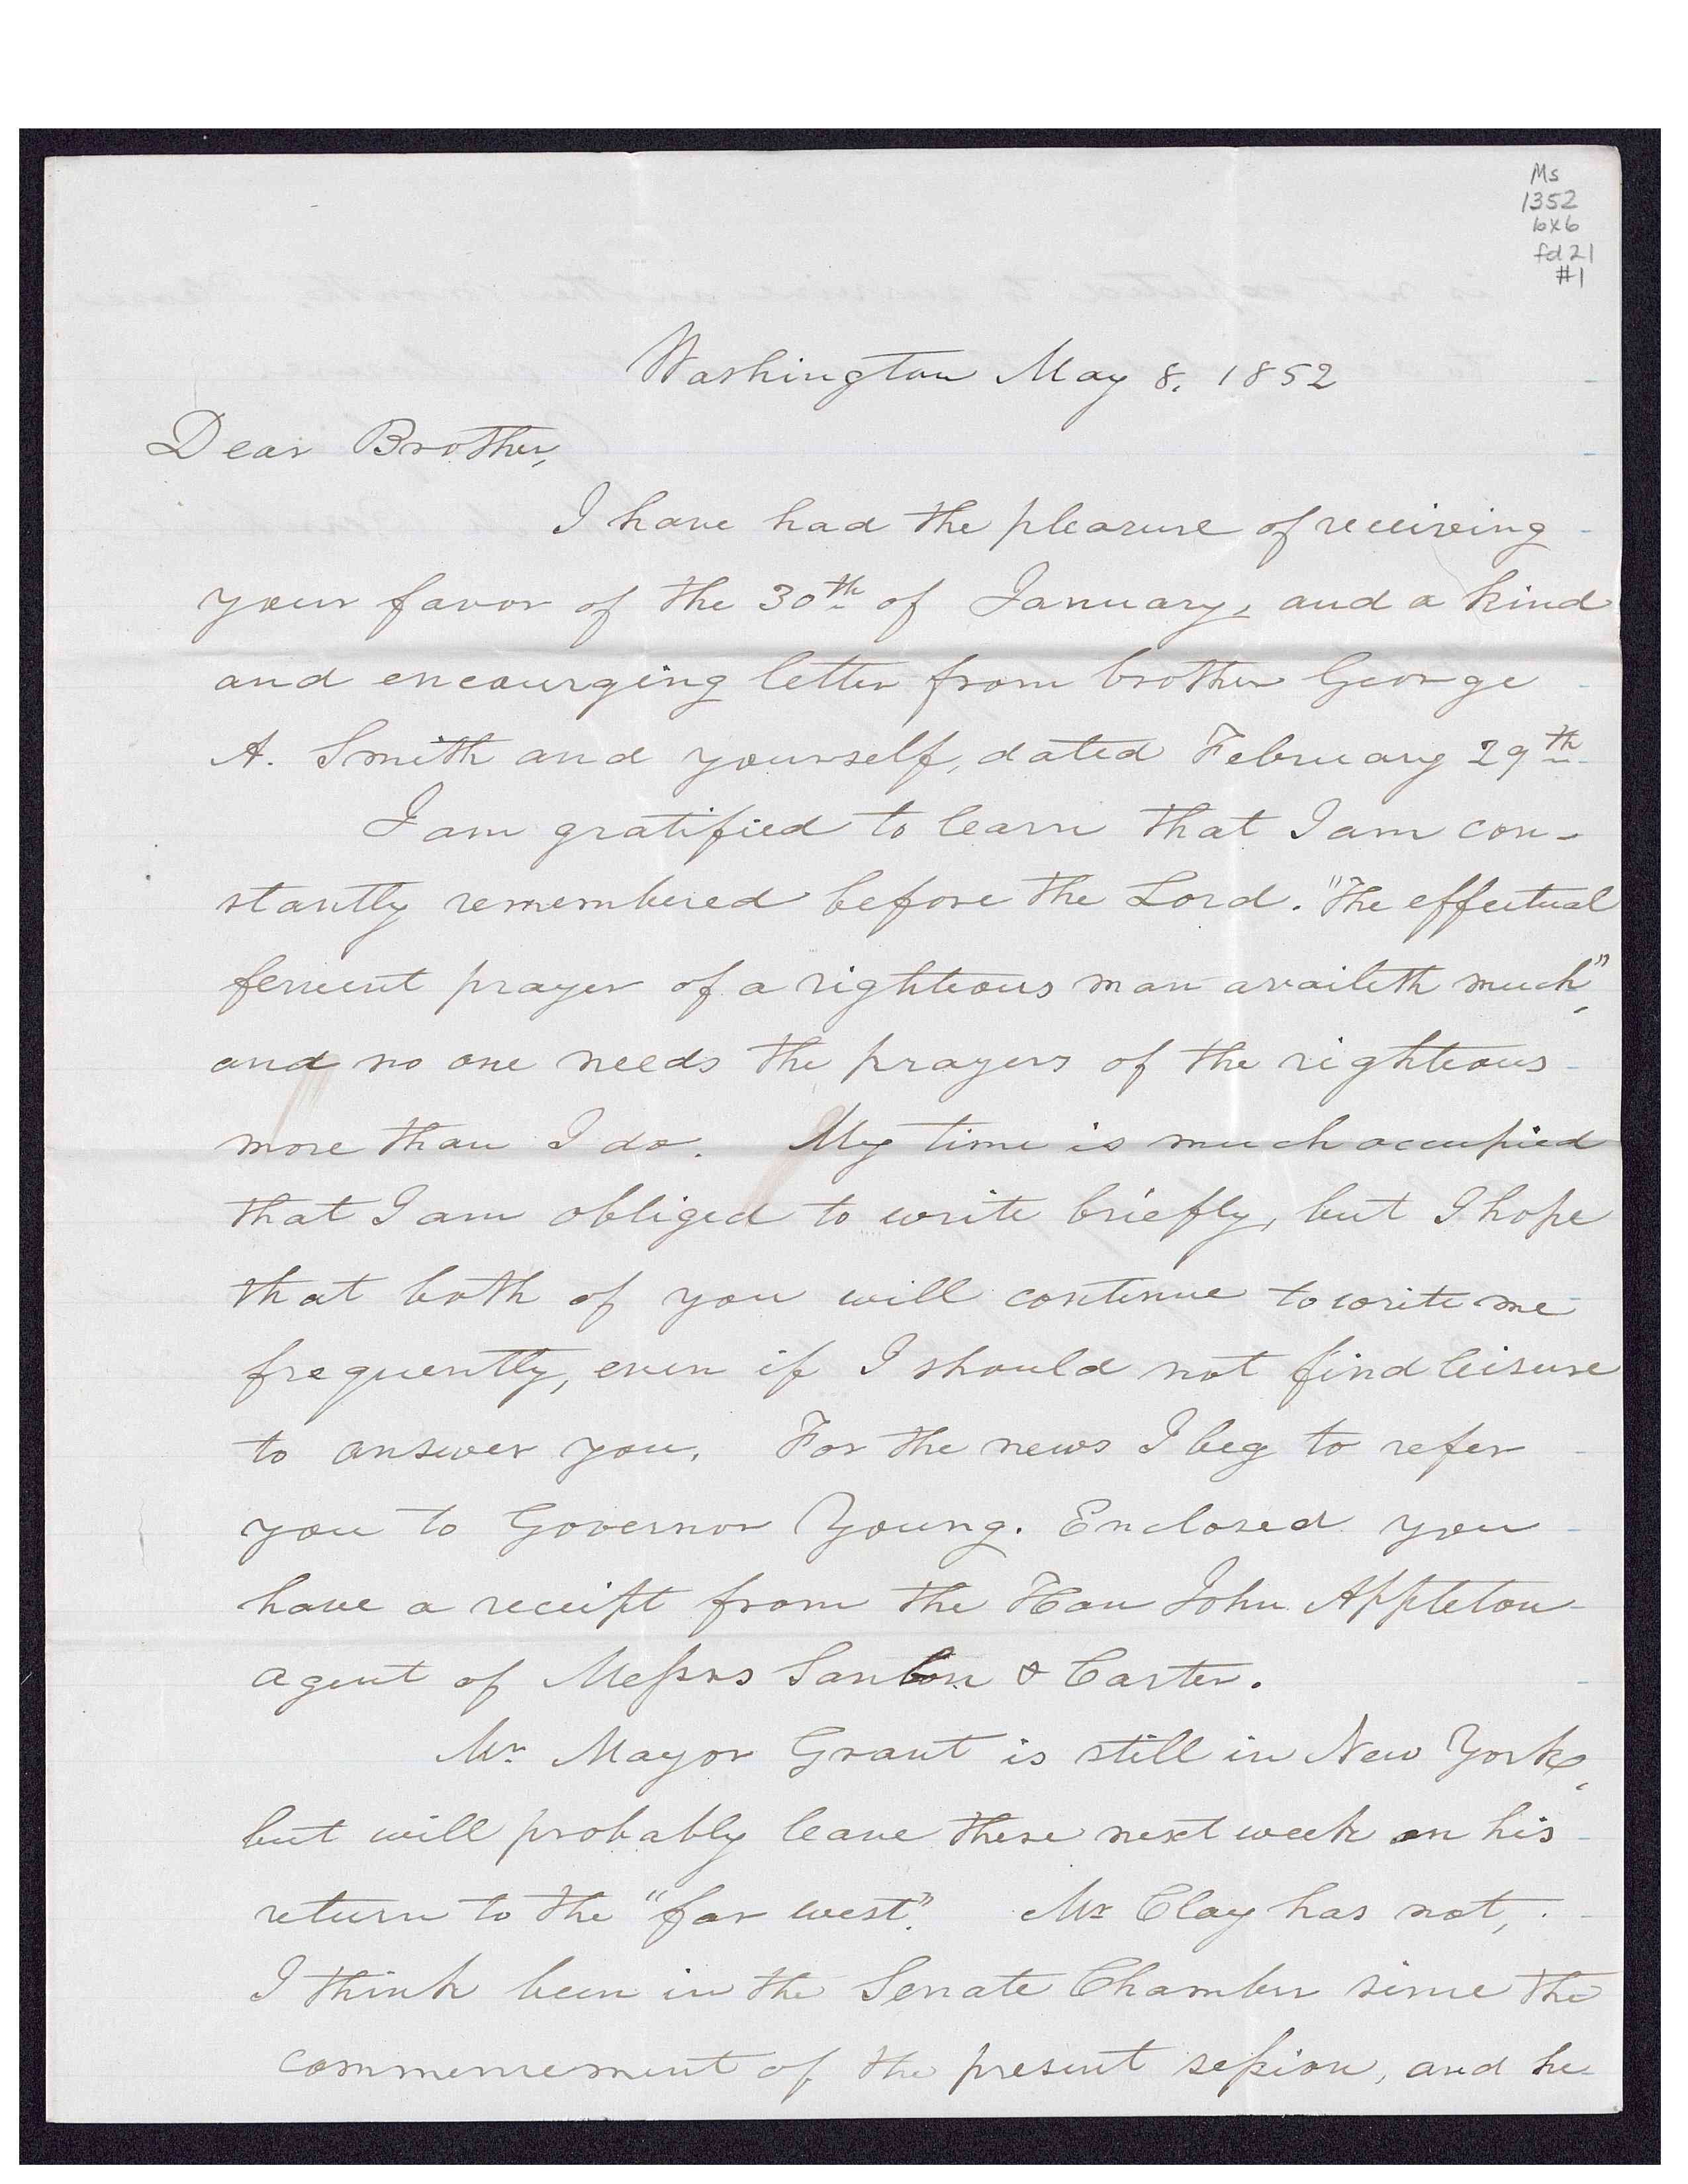 Ms
1352
bx6
fd 21
#1
Washington May 8. 1852
Dear Brother,
I have had the pleasure of receiving
your favor of the 30th of January, and a kind
and encourging letter from brother George
A. Smith and yourself, dated February 29th
I am gratified to learn that I am con-
stantly remembered before the Lord. "The effectual
fervent prayer of a righteous man availeth much",
and no one needs the prayers of the righteous
more than I do. My time is much occupied
that I am obliged to write briefly, but I hope
that both of you will continue to write me
frequently, even if I should not find leisure
to answer you. For the news I beg to refer
you to Governor Young. Enclosed you
have a receipt from the Hon John Appleton
agent of Messrs & Carter.
Mr Mayor Grant is still in New York,
but will probably leave there next week on his
return to the "far west". Mr Clay has not,
I think been in the Senate Chamber since the
commencement of the present session, and he